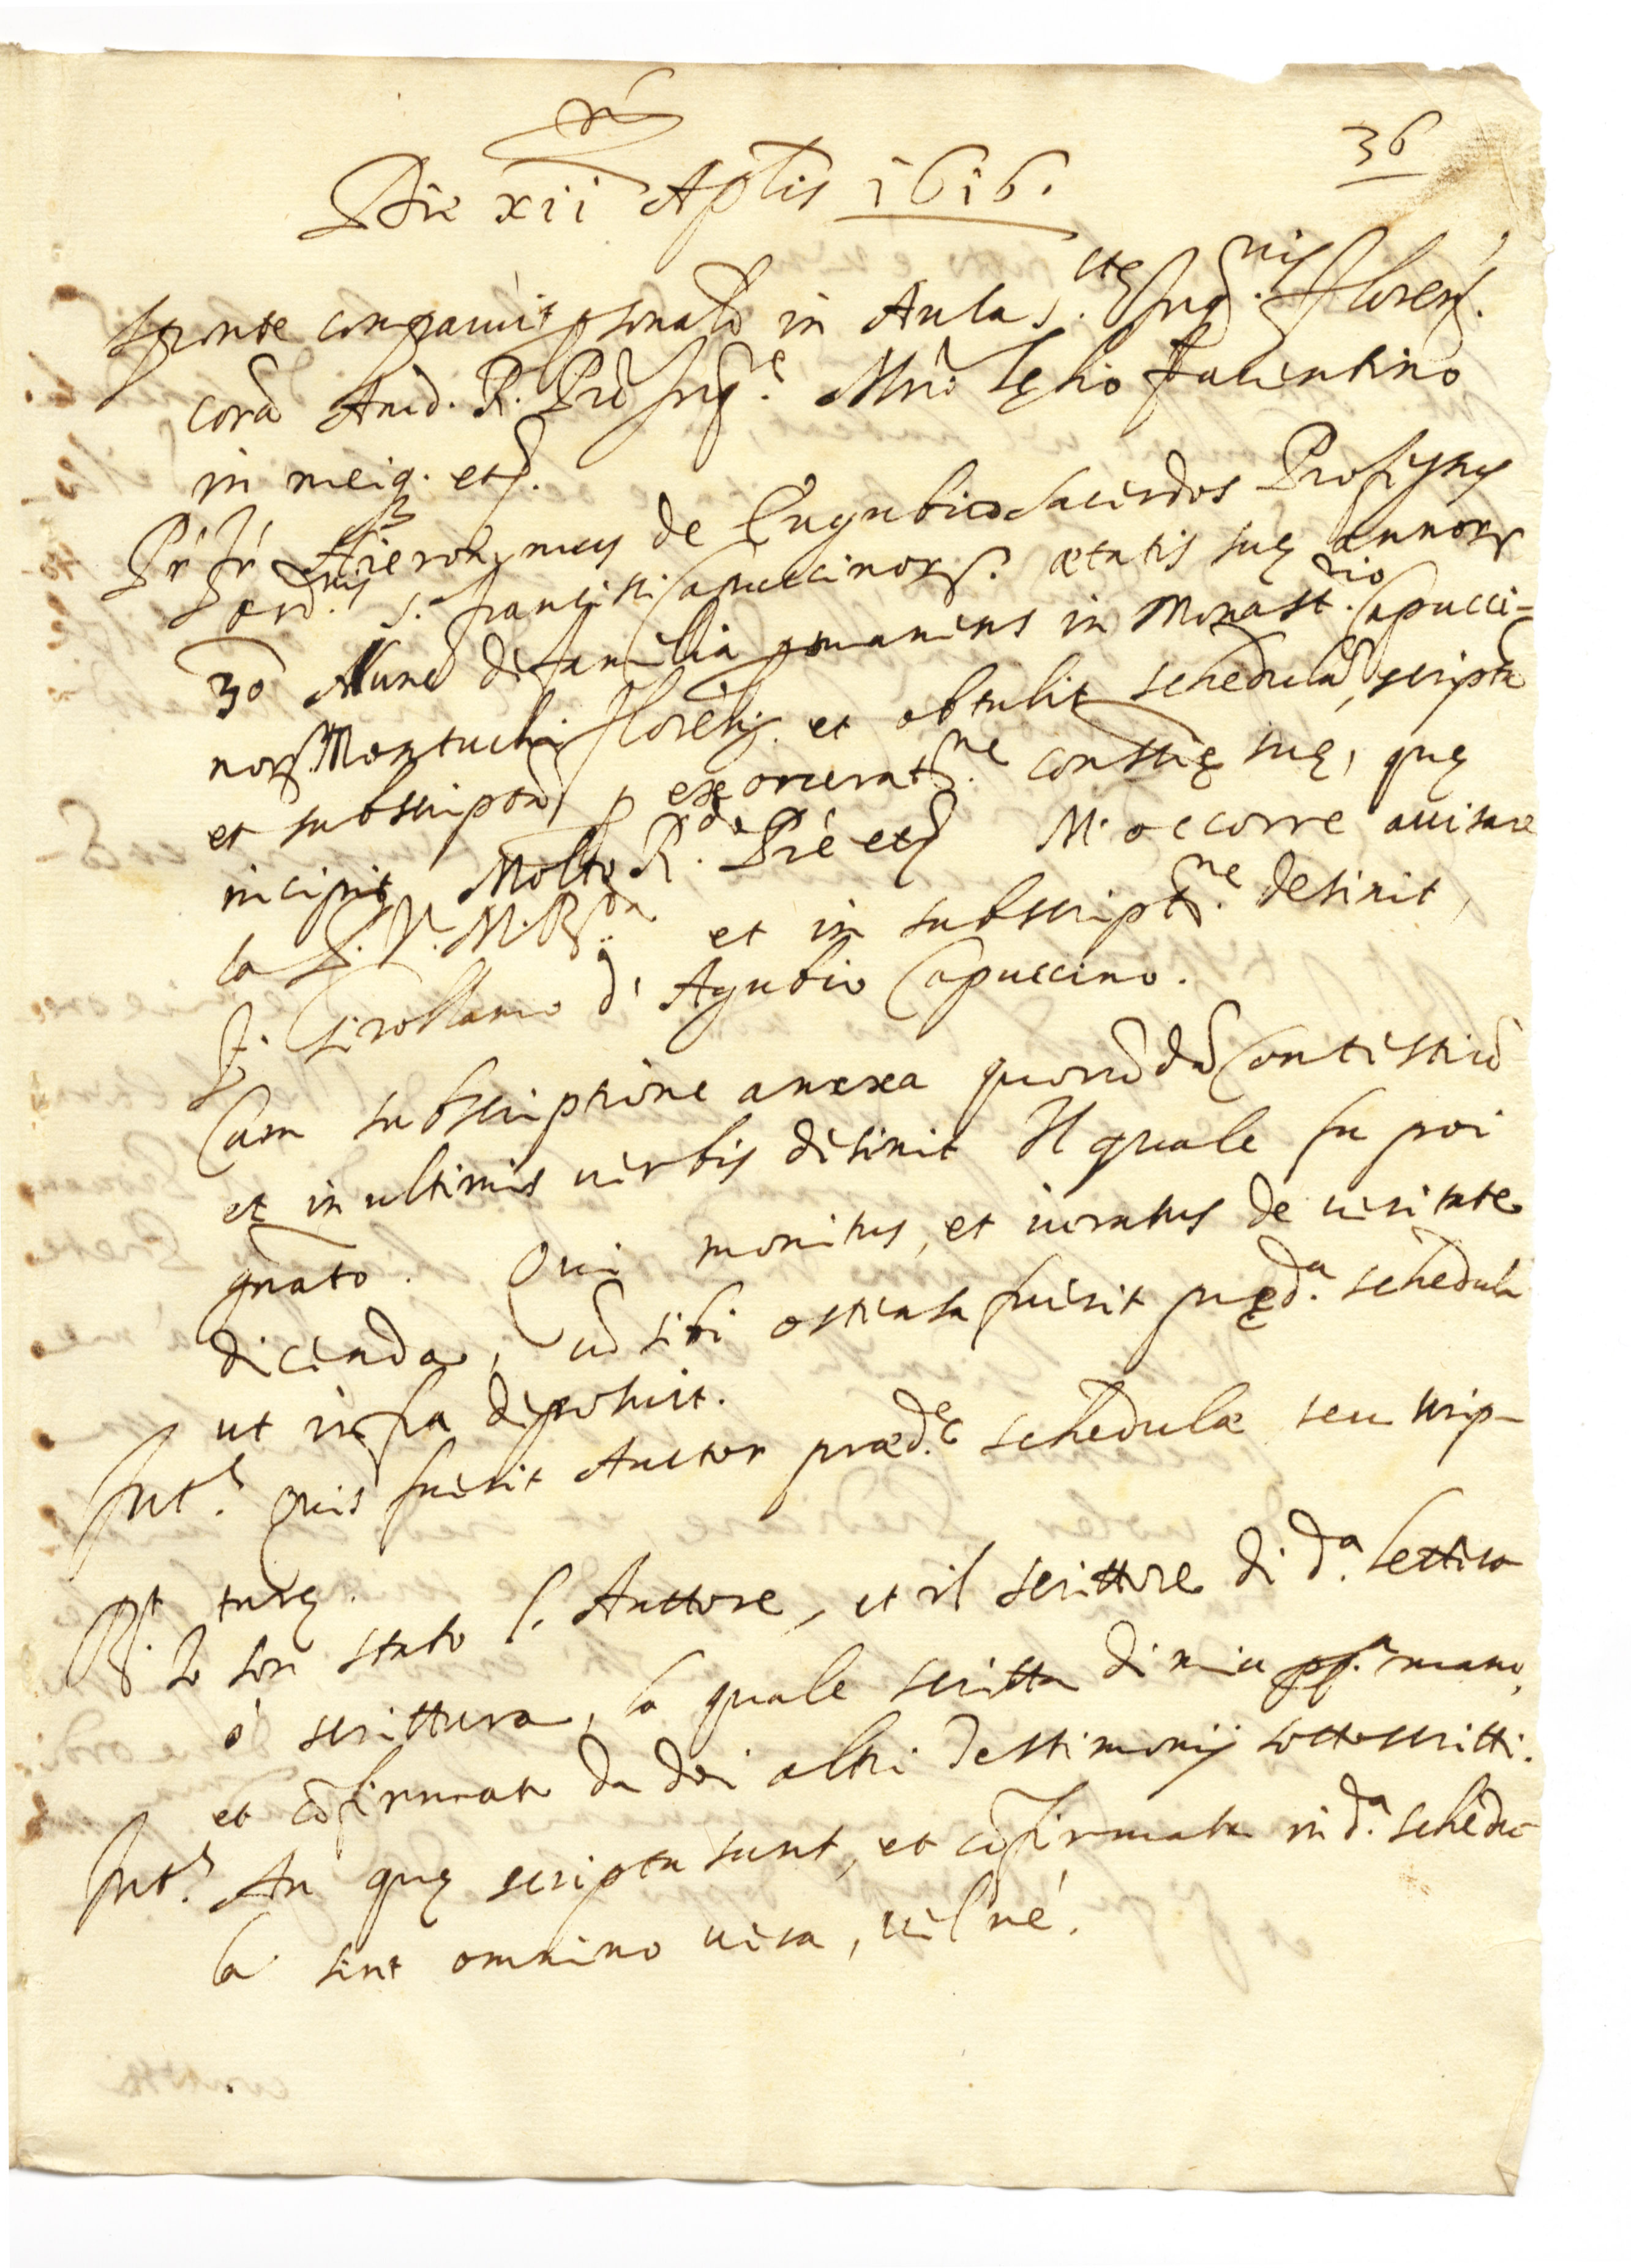 36
Die xii Aplis 1616.
Sponte comparuit psonalr in Aula S.tæ Inq.nis Floren.
corã Amd. R. Pre Inq.e Mro Lelio Faventino
in meiq. etc.
Pr Fr Hieronymus de Eugubio sacerdos Professus
ord.nis S. Francisci Capuccinor. ætatis suę annor
30 Nunc de familia pmanens in Monast.rio Capucci=
nor. Montuchi Floren. et obtulit schedulã, scriptã
et subscriptã, p exoneratne constię suę, quę
incipit Molto R.do Prè etc M'occorre avisare
la P. V. M. R.da et in subscript.ne desinit,
F. Girollamo d'Agubio Capuccino.
Cum subscriptione anexa quorũdã Contestiũ
et in ultimis verbis desinit Il quale fu poi
gnato. Qui monitus, et iuratus de veritate
dicenda, cũ sibi ostensa fuerit pręd.a schedula
ut infra deposuit.
Int.s Quis fuerit Auctor præd.ę schedulæ seu scrip-
turę.
R.t Io son stato l'Auttore, et il scrittore di d.a lettera
ó scrittura, la quale scritta di mia pp.a mano,
et cõfirmata da doi altri Testimonij sottoscritti.
Int.s An quę scripta sunt, et cõfirmata in d.a schedu-
la sint omnino vera, vel né.